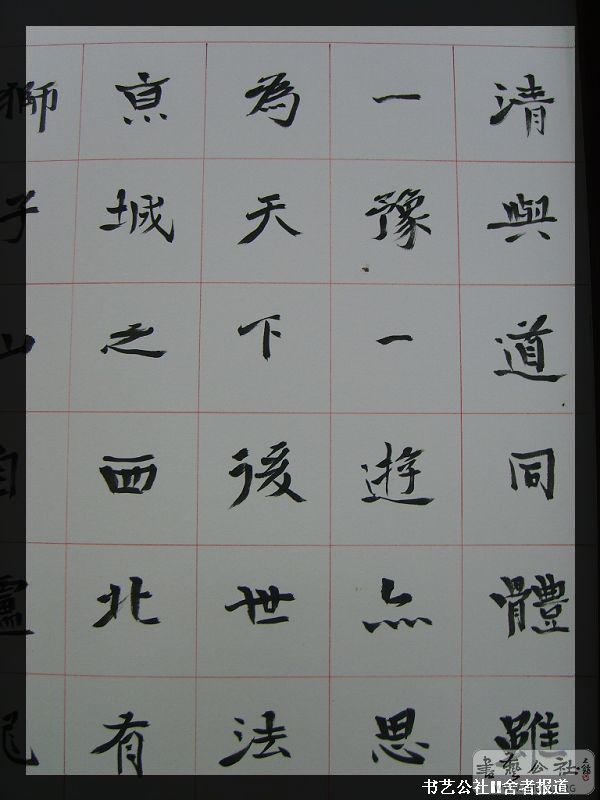 清與道同體雖
一豫一遊亦思
為天下後世法
亰城之西北有
獅子山自盧龍
書藝公社
书艺公社II舍者报道